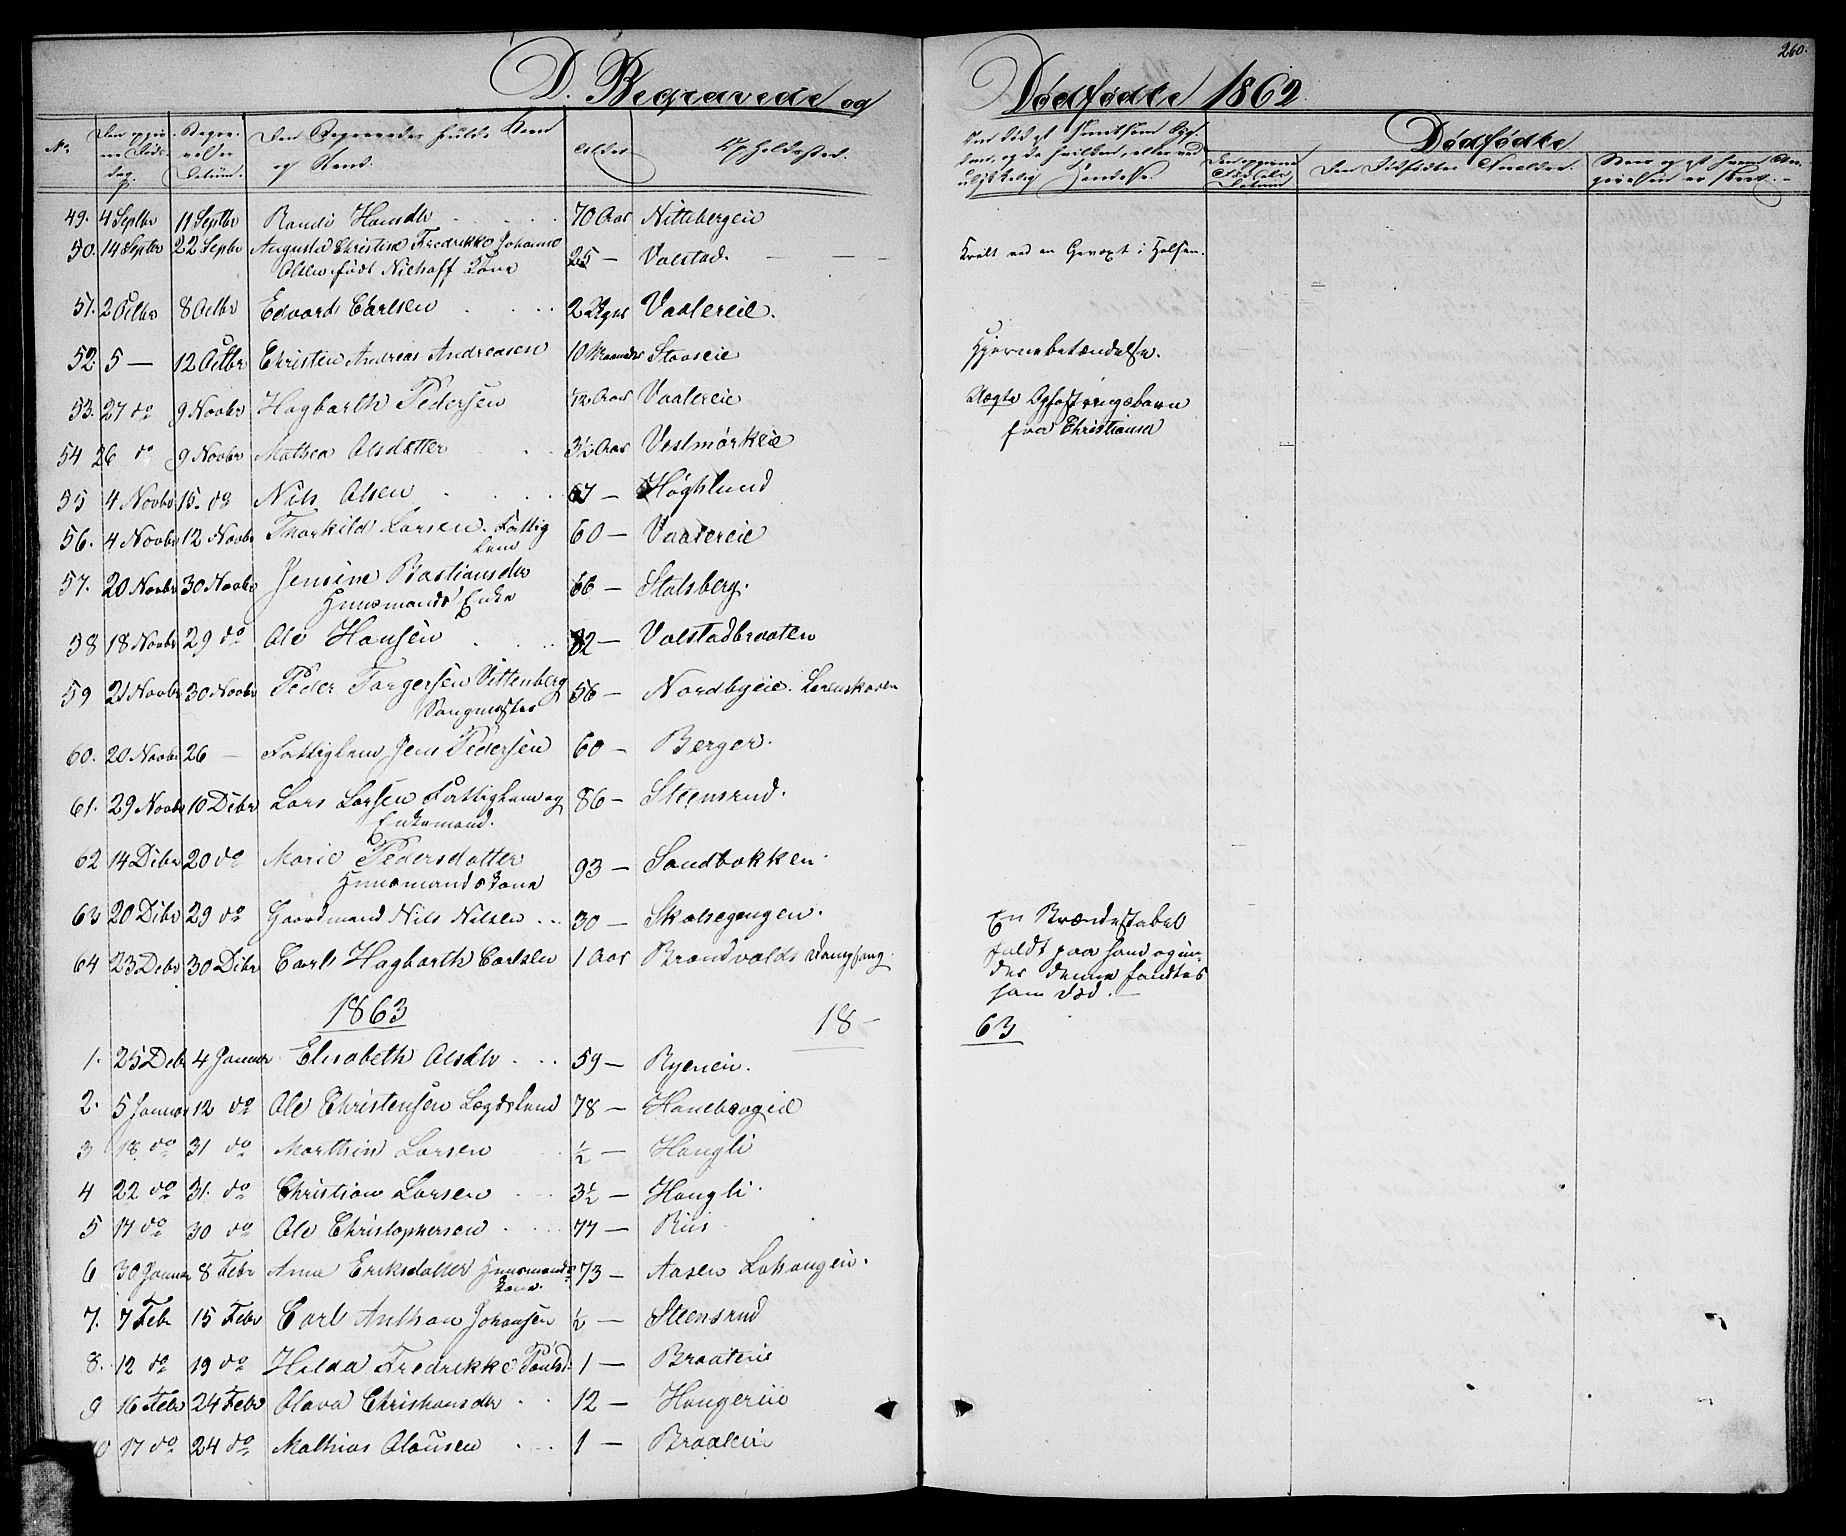 260.
D. Begravede og Dødfødte 1862
No. Den opgivne Døds-dag. Begravelses Datum. Den Begravedes fulde Navn og Stand. Alder Opholdssted.
Dødfødte
49. 4 Septbr 11 Septbr Randi Hansdr 70 Aar Nittebergeie
50. 14 Septbr 22 Septbr Augusta Christine Fredrikke Johanne
Olsen født Niehoff Kone 25 — Valstad. Kvalt ved en Gevæxt i Halsen.
51. 2 Octbr 8 Octbr Edvard Carlsen 2 Dage Vaalereie.
52. 5 — 12 Octbr Christen Andreas Andreasen 10 Maaneder Staaeie Hjernebetændelse.
53. 27 do 9 Novbr Hagbarth Pedersen 1/12 Aar Vaalereie Uægte Opfostringsbarn
fra Christiania
54 26 do 9 Novbr Mathea Olsdatter 3½ Aar Vestmørkeie
55 4 Novbr 15. do Nils Olsen 67 — Høghlund
56. 4 Novbr 12 Novbr Thorkild Larsen. Fattig
Lem 60 — Vaalereie
57. 20 Novbr 30 Novbr Jensine Bastiansdr
Huusmands Enke 66 — Stalsberg.
58 18 Novbr 29 do Ole Hansen 82 — Valstadbraaten
59 21 Novbr 30 Novbr Peder Torgersen Vittenberg
Sangmester 56 — Nordbyeie. Lørenskoven
60. 20 Novbr 26 — Fattiglem Jens Pedersen 60 — Berger.
61. 29 Novbr 10 Dcbr Lars Larsen Fattiglem og
Enkemand. 86 — Steensrud.
62 14 Dcbr 20 do Marie Pedersdatter
Huusmandskone 93 — Sandbakken.
63 20 Dcbr 29 do Gaardmand Nils Nilsen 30 — Skalsegengen. En Brændestabel
faldt paa ham og un-
der denne fandtes
han død. —
64 23 Dcbr 30 Dcbr Carl Hagbarth Carlsen 1 Aar Brandvalds
1863
18 — 63
1. 25 Dcbr 4 Januar Elisabeth Olsdr 59 — Ryeneie.
2. 5 Januar 12 do Ole Christensen Lægdslem 78 — Haneborgeie
3 18 do 31 do Marthin Larsen ½ — Haugli
4 22 do 31. do Christian Larsen 3½ — Haugli.
5 17 do 30 do Ole Christophersen 77 — Riis
6 30 Januar 8 Febr Anne Eriksdatter Huusmands
kone. 73 — Aasen
7. 7 Febr 15 Febr Carl Anthon Johansen ½ — Steensrud
8. 12 do 19 do Hilda Fredrikke Paulsd: 1 — Braateeie
9 16 Febr 24 Febr Olava Christiansdr 12 — Haugereie
10 17 do 24 do Mathias Olausen 1 — Braateeie